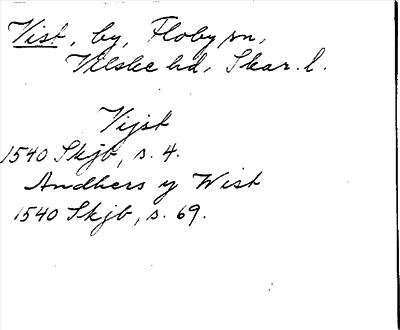 Vist, by, Floby sn,
Vilske hd, Skar. l.
Vijst
1540 Skjb, s. 4.
Andhers y Wist
1540 Skjb, s. 69.